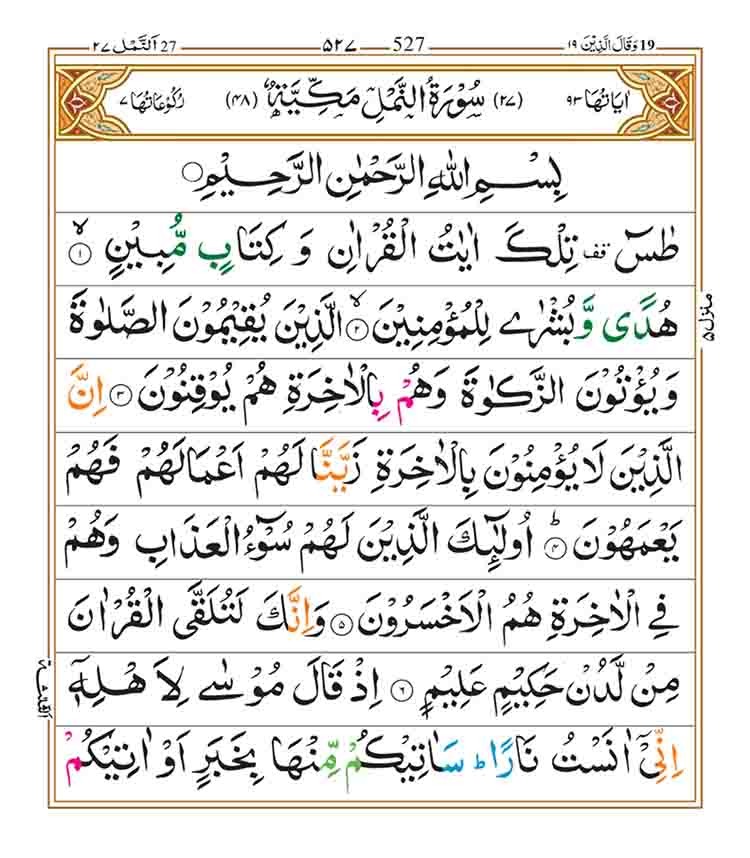 19 وَقَالَ الَّذِیْنَ ١٩ 527 ٥٢٧ 27 اَلنَّمْل ٢٧
اٰیَاتُهَا ٩٣ (٢٧) سُوْرَةُ النَّمْلِ مَكِّیَّةٌ (٤٨) رُكُوْعَاتُهَا ٧
بِسْمِ اللّٰهِ الرَّحْمٰنِ الرَّحِیْمِ
طٰسٓ تف تِلْكَ اٰیٰتُ الْقُرْاٰنِ وَ كِتَابٍ مُّبِیْنٍ ۙ‏ ١
هُدًی وَّ بُشْرٰی لِلْمُؤْمِنِیْنَ ۙ‏ ٢ الَّذِیْنَ یُقِیْمُوْنَ الصَّلٰوةَ
منزل ٥
وَیُؤْتُوْنَ الزَّكٰوةَ وَهُمْ بِالْاٰخِرَةِ هُمْ یُوْقِنُوْنَ ٣ اِنَّ
الَّذِیْنَ لَا یُؤْمِنُوْنَ بِالْاٰخِرَةِ زَیَّنَّا لَهُمْ اَعْمَالَهُمْ فَهُمْ
یَعْمَهُوْنَ ؕ ٤ اُولٰٓئِكَ الَّذِیْنَ لَهُمْ سُوْٓءُ الْعَذَابِ وَهُمْ
فِی الْاٰخِرَةِ هُمُ الْاَخْسَرُوْنَ ٥ وَاِنَّكَ لَتُلَقَّی الْقُرْاٰنَ
مِنْ لَّدُنْ حَكِیْمٍ عَلِیْمٍ ٦ اِذْ قَالَ مُوْسٰی لِاَهْلِهٖۤ
اِنِّیْۤ اٰنَسْتُ نَارًا ؕ سَاٰتِیْكُمْ مِّنْهَا بِخَبَرٍ اَوْ اٰتِیْكُمْ